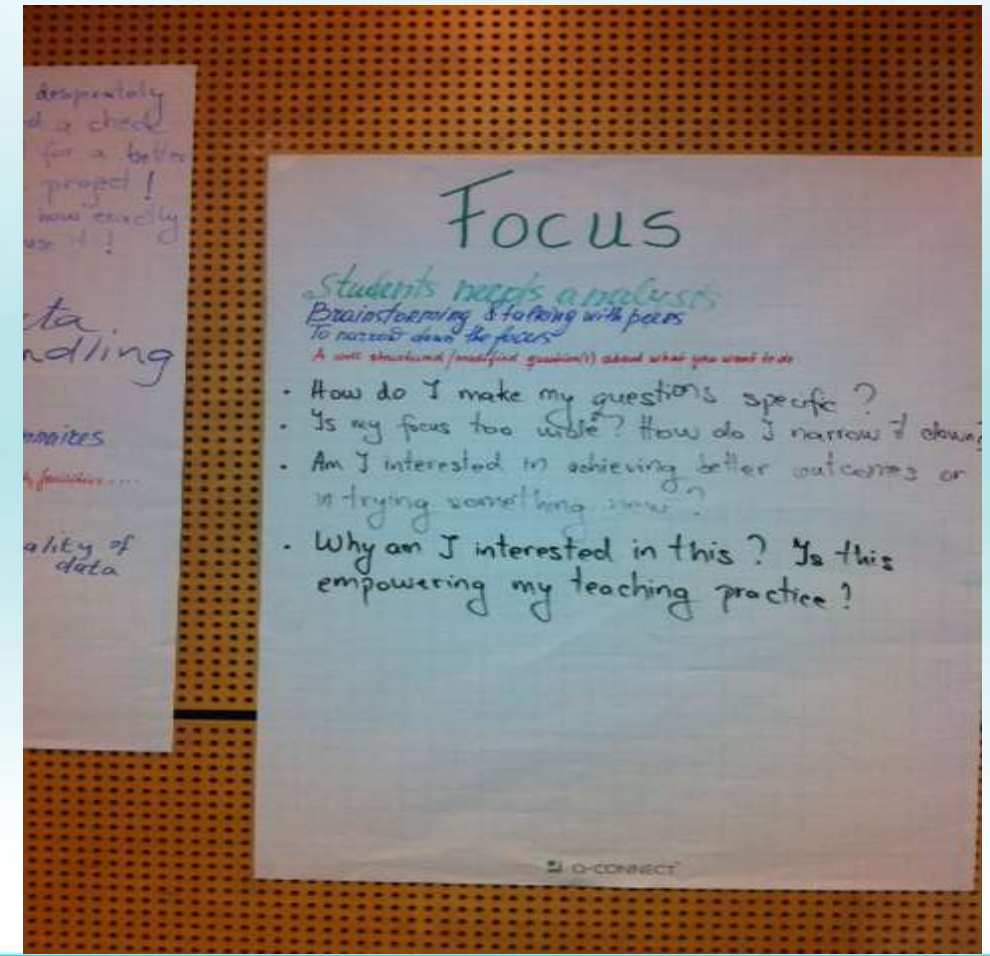 desperately
a check
for a better
project!
how exactly
use it!
ta
ndling
nnaires
ality of
data
Focus
Students needs analysis
Brainstorming & talking with peers
To narrow down the focus
A well structured / modified question(s) about what you want to do
· How do I make my questions specific?
· Is my focus too wide? How do I narrow it down?
· Am I interested in achieving better outcomes or
in trying something new?
· Why am I interested in this? Is this
empowering my teaching practice?
Q-CONNECT